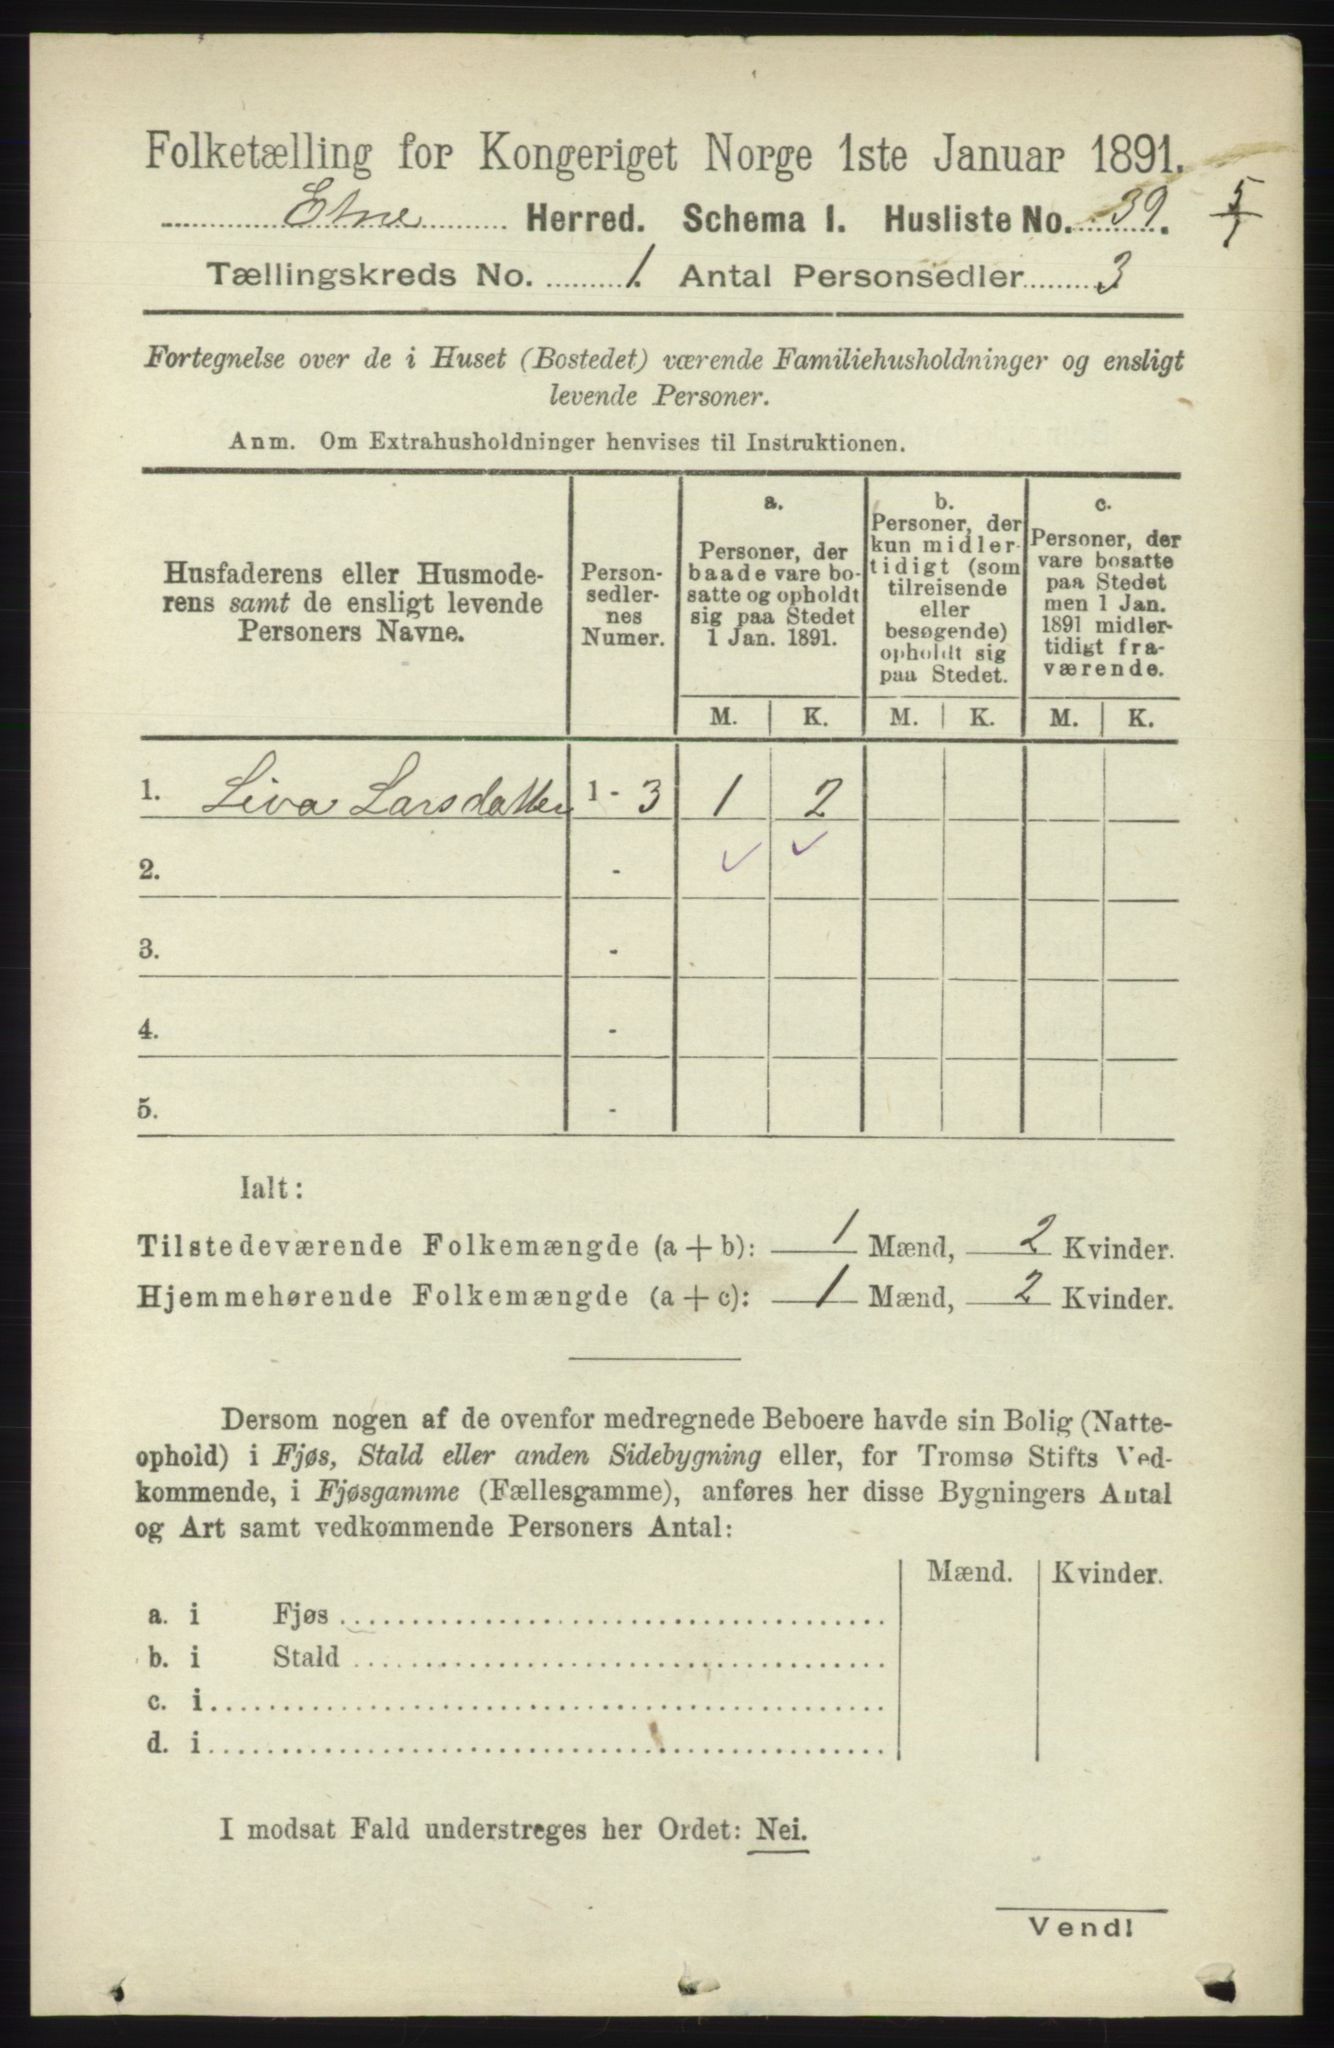 Folketælling for Kongeriget Norge 1ste Januar 1891.
Etne Herred. Schema I. Husliste No. 39. 5/1
Tællingskreds No. 1. Antal Personsedler 3
Fortegnelse over de i Huset (Bostedet) værende Familiehusholdninger og ensligt
levende Personer.
Anm. Om Extrahusholdninger henvises til Instruktionen.
Husfaderens eller Husmode-
rens samt de ensligt levende
Personers Navne.
Person-
sedler-
nes
Numer.
a.
Personer, der
baade vare bo-
satte og opholdt
sig paa Stedet
1 Jan. 1891.
b.
Personer, der
kun midler-
tidigt (som
tilreisende
eller
besøgende)
opholdt sig
paa Stedet.
c.
Personer, der
vare bosatte
paa Stedet
men 1 Jan.
1891 midler-
tidigt fra-
værende.
M. K. M. K. M. K.
1. Siva Larsdatter 1 - 3 1 2
2. - ✓ ✓
3. -
4. -
5. -
Ialt:
Tilstedeværende Folkemængde (a + b): 1 Mænd, 2 Kvinder.
Hjemmehørende Folkemængde (a + c): 1 Mænd, 2 Kvinder.
Dersom nogen af de ovenfor medregnede Beboere havde sin Bolig (Natte-
ophold) i Fjøs, Stald eller anden Sidebygning eller, for Tromsø Stifts Ved-
kommende, i Fjøsgamme (Fællesgamme), anføres her disse Bygningers Antal
og Art samt vedkommende Personers Antal:
Mænd. Kvinder.
a. i Fjøs
b. i Stald
c. i
d. i
I modsat Fald understreges her Ordet: Nei.
Vend!